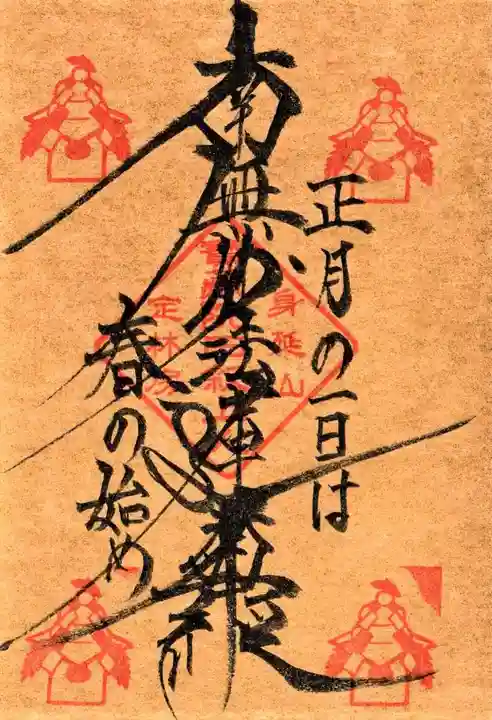 正月の一日は
南無妙法蓮華経
春の始め
身延山
定林坊